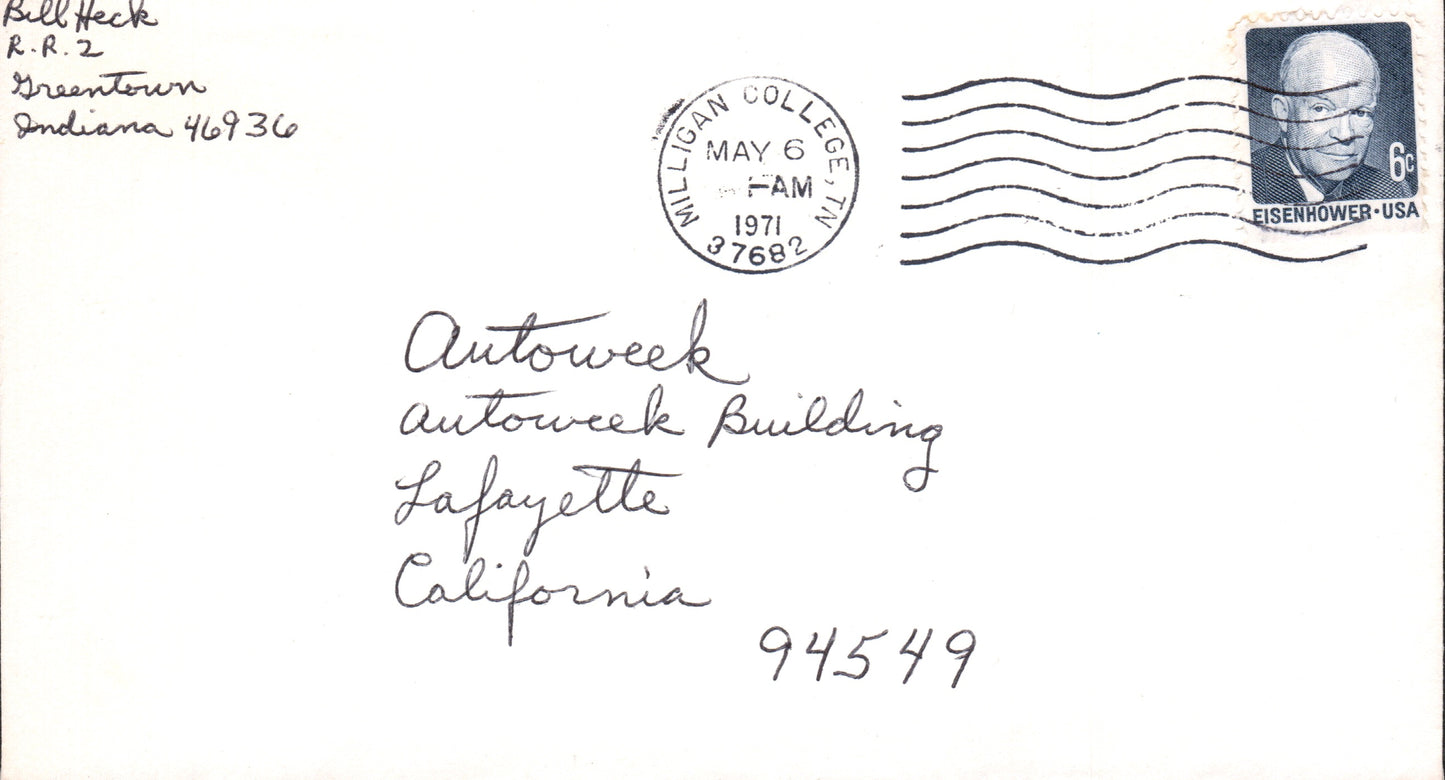 Bill Heck
R.R.2
Greentown
Indiana 46936
MILLIGAN COLLEGE, TN
MAY 6
AM
1971
37682
6c
EISENHOWER·USA
Autoweek
Autoweek Building
Lafayette
California
94549